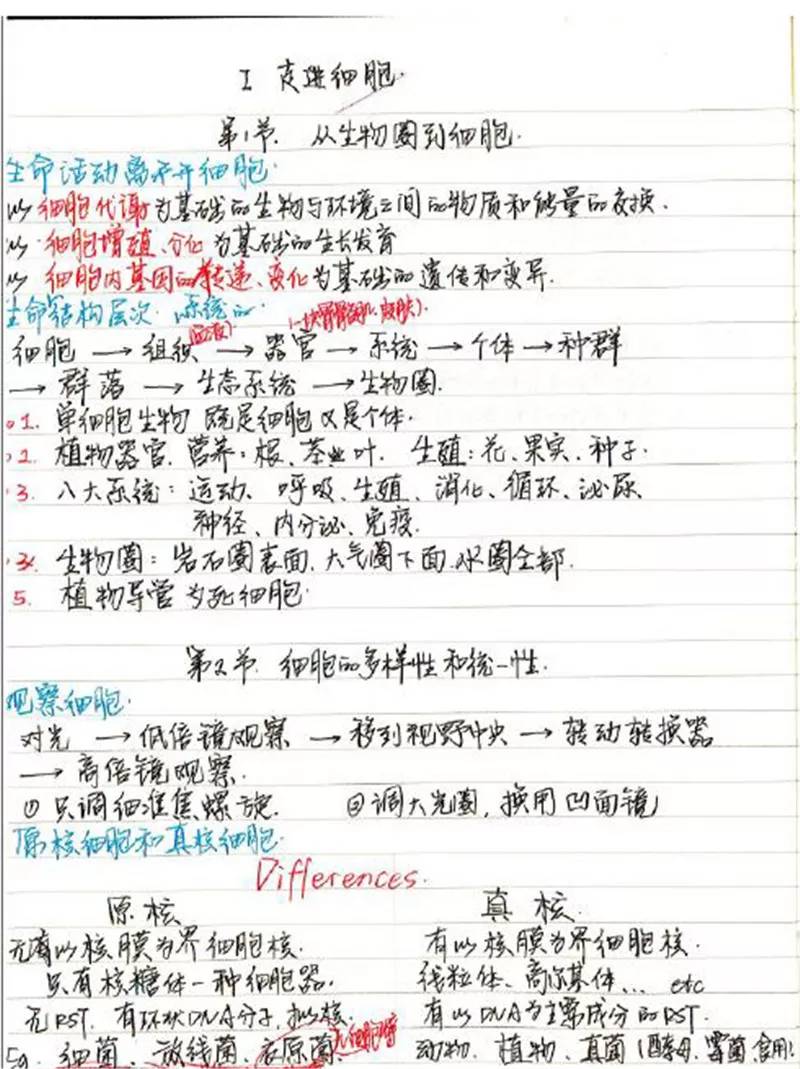 I 走进细胞.
第1节. 从生物圈到细胞.
生命活动离不开细胞.
以细胞代谢为基础的生物与环境之间的物质和能量的交换.
以细胞增殖、分化为基础的生长发育
以细胞内基因的传递、变化为基础的遗传和变异.
生命结构层次. 系统的
细胞 → 组织 → 器官 → 系统 → 个体 → 种群
→ 群落 → 生态系统 → 生物圈.
1. 单细胞生物 既是细胞又是个体.
2. 植物器官. 营养:根、茎、叶. 生殖:花、果实、种子.
3. 八大系统: 运动、呼吸、生殖、消化、循环、泌尿、
神经、内分泌、免疫.
生物圈: 岩石圈表面、大气圈下面、水圈全部.
5. 植物导管为死细胞.
第2节. 细胞的多样性和统一性.
观察细胞.
对光 → 低倍镜观察 → 移到视野中央 → 转动转换器
→ 高倍镜观察.
① 只调细准焦螺旋. ②调大光圈, 换用凹面镜
原核细胞和真核细胞.
Differences.
原核 真核.
无以核膜为界细胞核. 有以核膜为界细胞核.
只有核糖体一种细胞器. 线粒体、高尔基体... etc
无RST. 有环状DNA分子, 拟核. 有以DNA为主要成分的RST.
Eg. 细菌、放线菌、衣原菌. 动物、植物、真菌(酵母、霉菌、食用